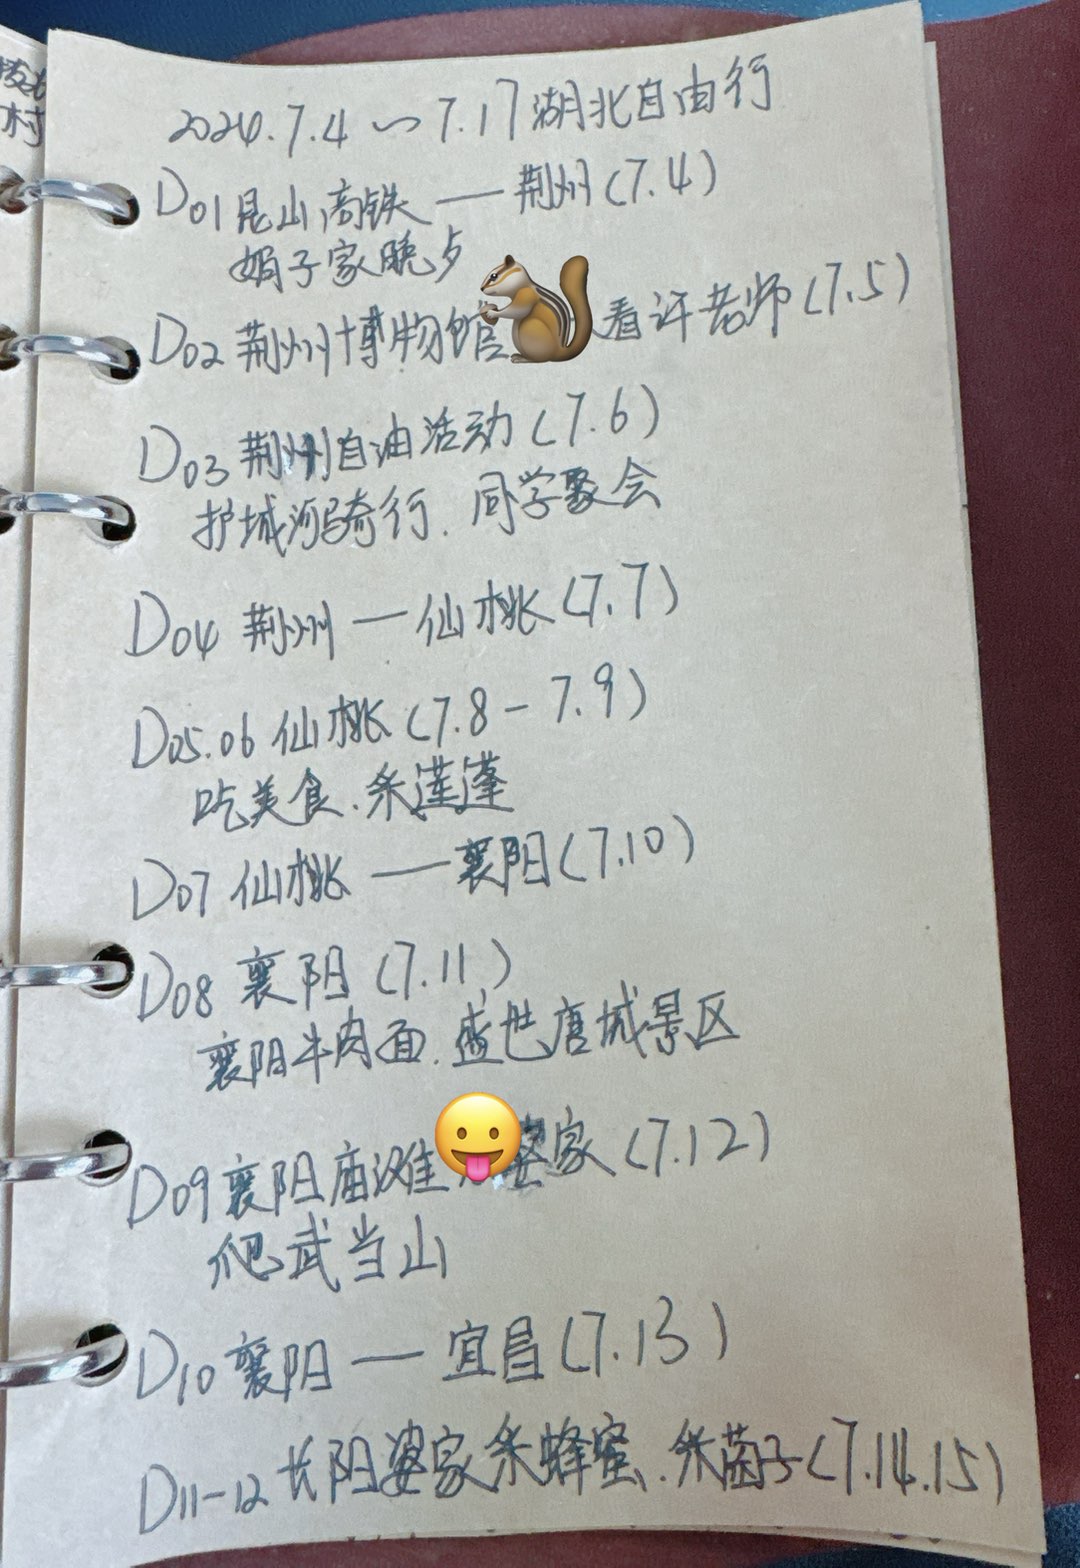 2024.7.4~7.17湖北自由行
D01昆山高铁——荆州(7.4)
娟子家晚歺
D02荆州博物馆 看许老师(7.5)
D03荆州自由活动(7.6)
护城河骑行.同学聚会
D04 荆州—仙桃(7.7)
D05.06仙桃(7.8-7.9)
吃美食.采莲蓬
D07仙桃——襄阳(7.10)
D08 襄阳(7.11)
襄阳牛肉面.盛世唐城景区
D09襄阳庙滩 婆家(7.12)
爬武当山
D10襄阳——宜昌(7.13)
D11-12长阳婆家采蜂蜜.采菌子(7.14.15)